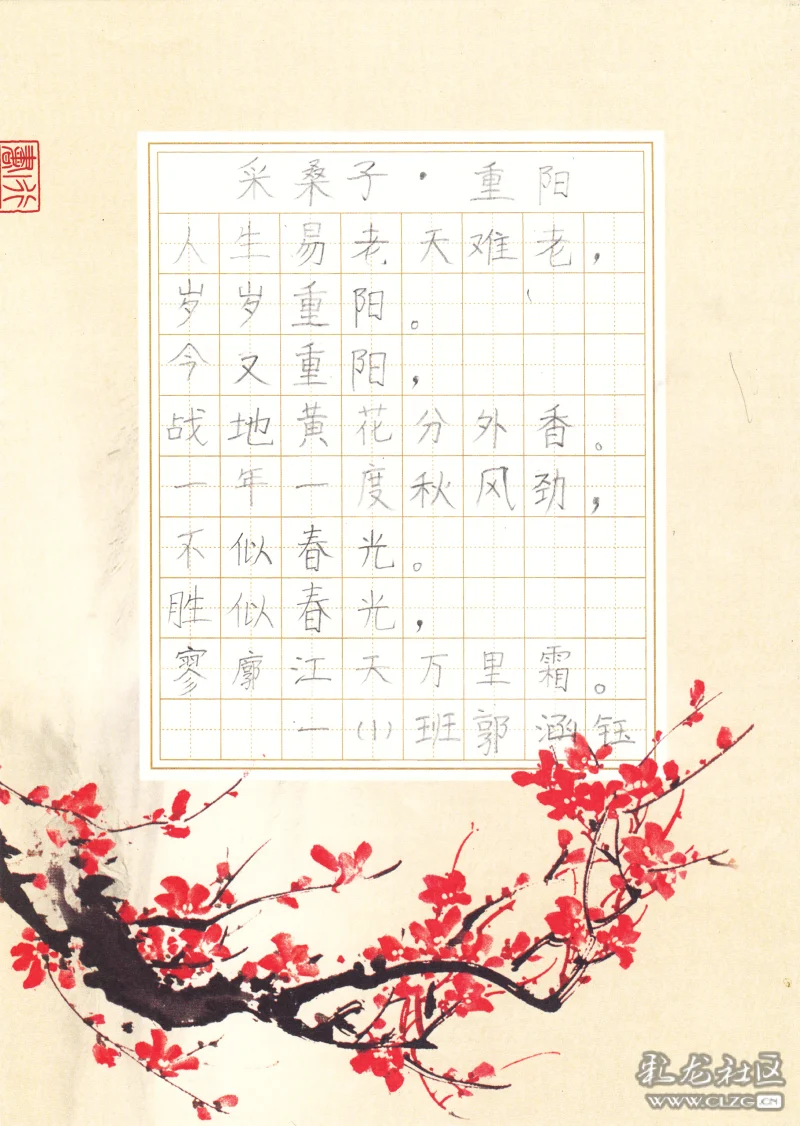 采桑子·重阳
人生易老天难老，
岁岁重阳。
今又重阳，
战地黄花分外香。
一年一度秋风劲，
不似春光。
胜似春光，
寥廓江天万里霜。
一(1)班郭涵钰
彩龙社区
WWW.CLZG.CN